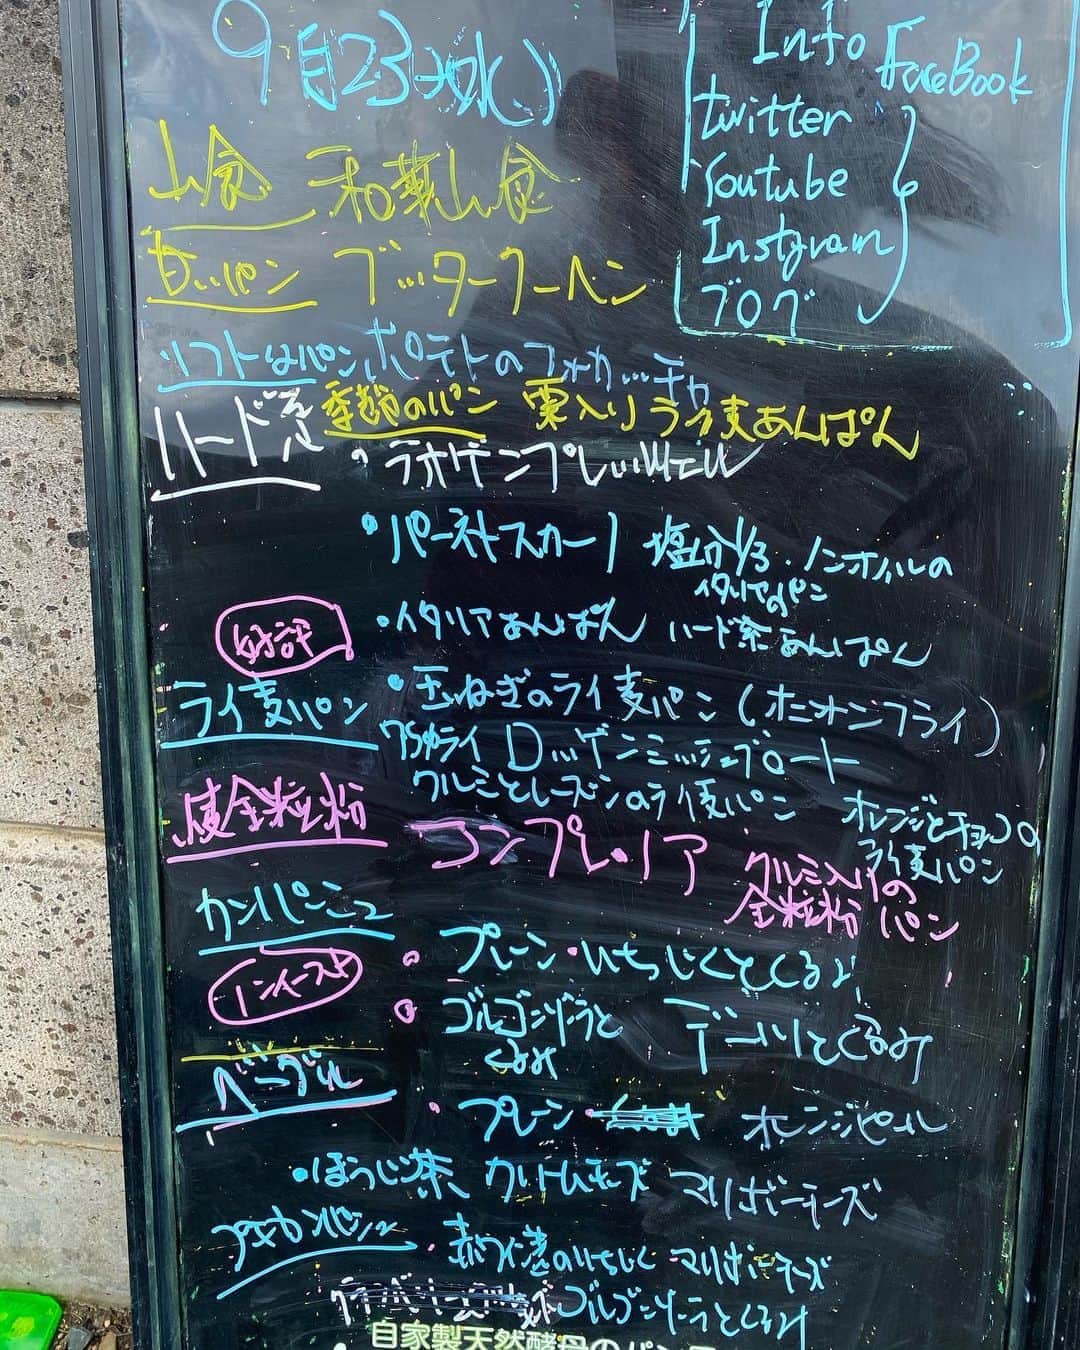 9月23日(水)
Info
FaceBook
twitter
Youtube
Instgram
ブログ
山食 和薬山食
甘いパン ブッタークーヘン
ソフトなパン ポテトのフォカッチャ
ハード系 季節のパン 栗入りライ麦あんぱん
・ラオゲンプレッツェル
・パーネトスカーノ 塩分1/3・ノンオイルの
イタリアのパン
好評 ・イタリアあんぱん ハード系あんぱん
ライ麦パン ・玉ねぎのライ麦パン(オニオンフライ)
ロッゲンミッシュブロート
クルミとレーズンのライ麦パン
オレンジとチョコの
ライ麦パン
全粒粉 コンプレノア クルミ入りの
全粒粉パン
カンパーニュ
ノンイースト ・プレーン・いちじくとくるみ
・ゴルゴンゾーラと
くるみ
デーツとくるみ
ベーグル
・プレーン・ オレンジピール
・ほうじ茶 クリームチーズ マリボーチーズ
プチカンパーニュ・赤ワイン漬のいちじく マリボーチーズ
ゴルゴンゾーラとくるみ
自家製天然酵母のパン